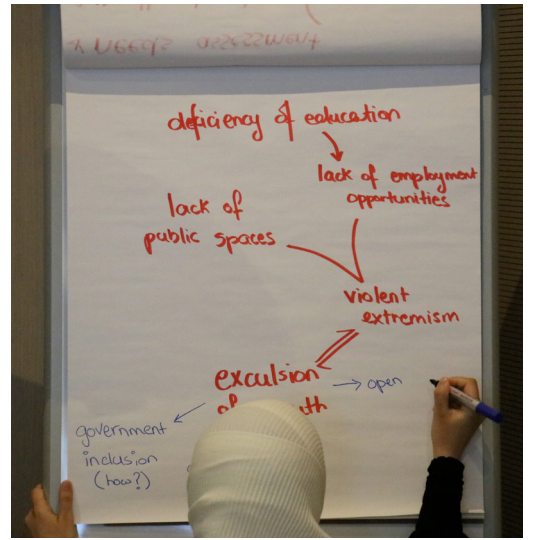 * Needs assessment
deficiency of education
lack of employment
opportunities
lack of
public spaces
violent
extremism
exculsion
→ open
government
inclusion
(how?)